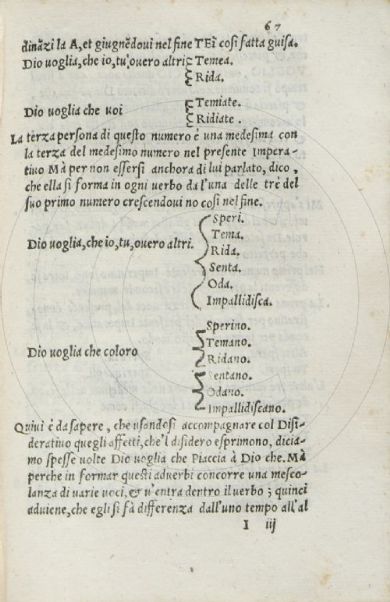 67
dināzi la A, et giugnēdovi nel fine TEì cosi fatta guisa.
Dio voglia, che io, tu, overo altri Temea.
Rida.
Dio voglia che voi Temiate.
Ridiate.
La terza persona di questo numero è una medesima con
la terza del medesimo numero nel presente Impera-
tivo Mà per non essersi anchora di lui parlato, dico,
che ella si forma in ogni verbo da l'una delle tre del
suo primo numero crescendovi no cosi nel fine.
Dio voglia, che io, tu, overo altri. Speri.
Tema.
Rida.
Senta.
Oda.
Impallidisca.
Dio voglia che coloro Sperino.
Temano.
Ridano.
Sentano.
Odano.
Impallidiscano.
Quivi è da sapere, che usandosi accompagnare col Disi-
derativo quegli affetti, che'l disidero esprimono, dicia-
mo spesse volte Dio voglia che Piaccia à Dio che. Mà
perche in formar questi adverbi concorre una mesco-
lanza di varie voci, & v'entra dentro il verbo; quinci
adviene, che egli si fà differenza dall'uno tempo all'al
I iij